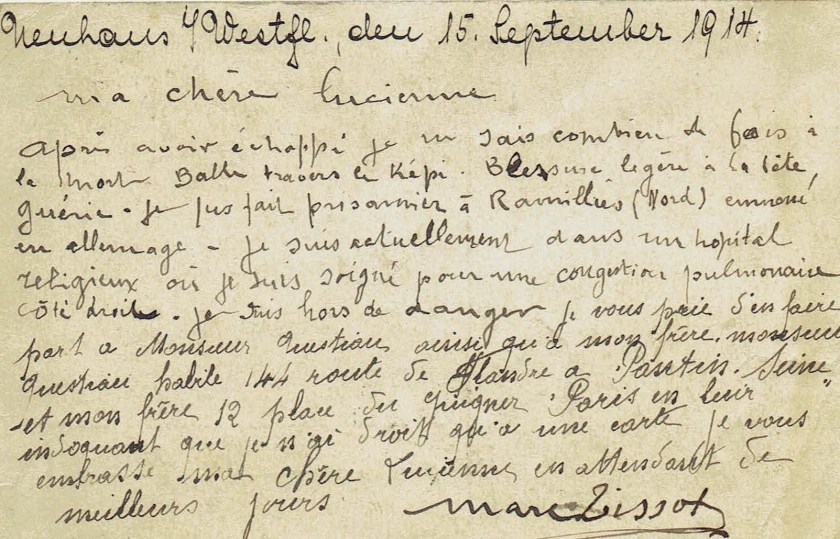 Neuhaus i/ Westfl., den 15. September 1914.
ma chère Lucienne
après avoir échappé je ne sais combien de fois à
la mort Balle travers le Képi. Blessure legère à la tête,
guérie. je fus fait prisonnier à Ramillies (Nord) emmené
en allemage - je suis actuellement dans un hôpital
religieux où je suis soigné pour une congestion pulmonaire
côté droit. je suis hors de danger je vous prie d'en faire
part a Monsieur Questiau ainsi qu'a mon frère. monsieur
Questiau habite 144 route de Flandre a Pantin. Seine
et mon frère 12 place du Paris en leur
indoquant que je n'ai droit qu'a une carte je vous
embrasse ma chère Lucienne en attendant de
meilleurs jours Marc Tissot